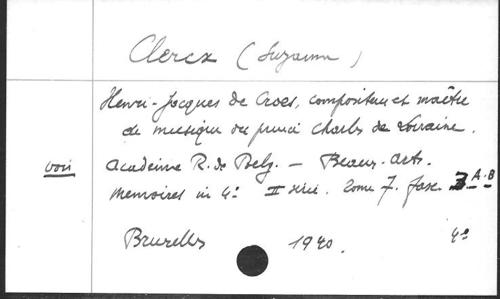 Clercx (Suzanne)
Henri-Jacques de Croes, compositeur et maître
de musique du prince Charles de Lorraine.
voir Académie R. de Belg. — Beaux-Arts.
Mémoires in 4° II série. Tome 7. fasc. 3 A-B
Bruxelles 1940. 4°